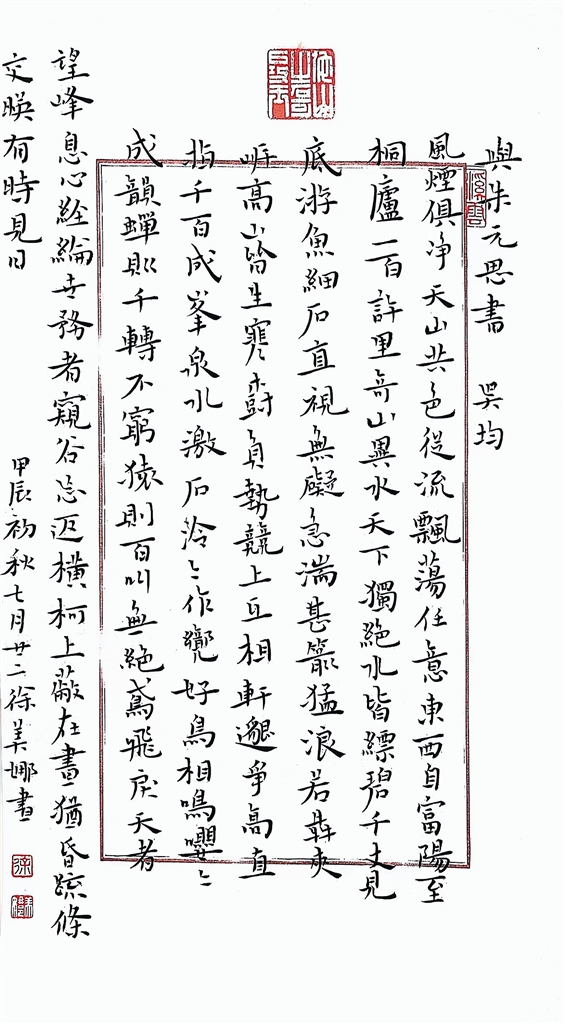 與朱元思書 吳均
風煙俱淨天山共色從流飄蕩任意東西自富陽至
桐廬一百許里奇山異水天下獨絕水皆縹碧千丈見
底游魚細石直視無礙急湍甚箭猛浪若犇夾
岸高山皆生寒樹負勢競上互相軒邈爭高直
指千百成峯泉水激石泠〻作響好鳥相鳴嚶〻
成韻蟬則千轉不窮猿則百叫無絕鳶飛戾天者
望峰息心經綸世務者窺谷忘返橫柯上蔽在晝猶昏疏條
交暎有時見日
甲辰初秋七月廿二徐美娜書
溪雲
徐